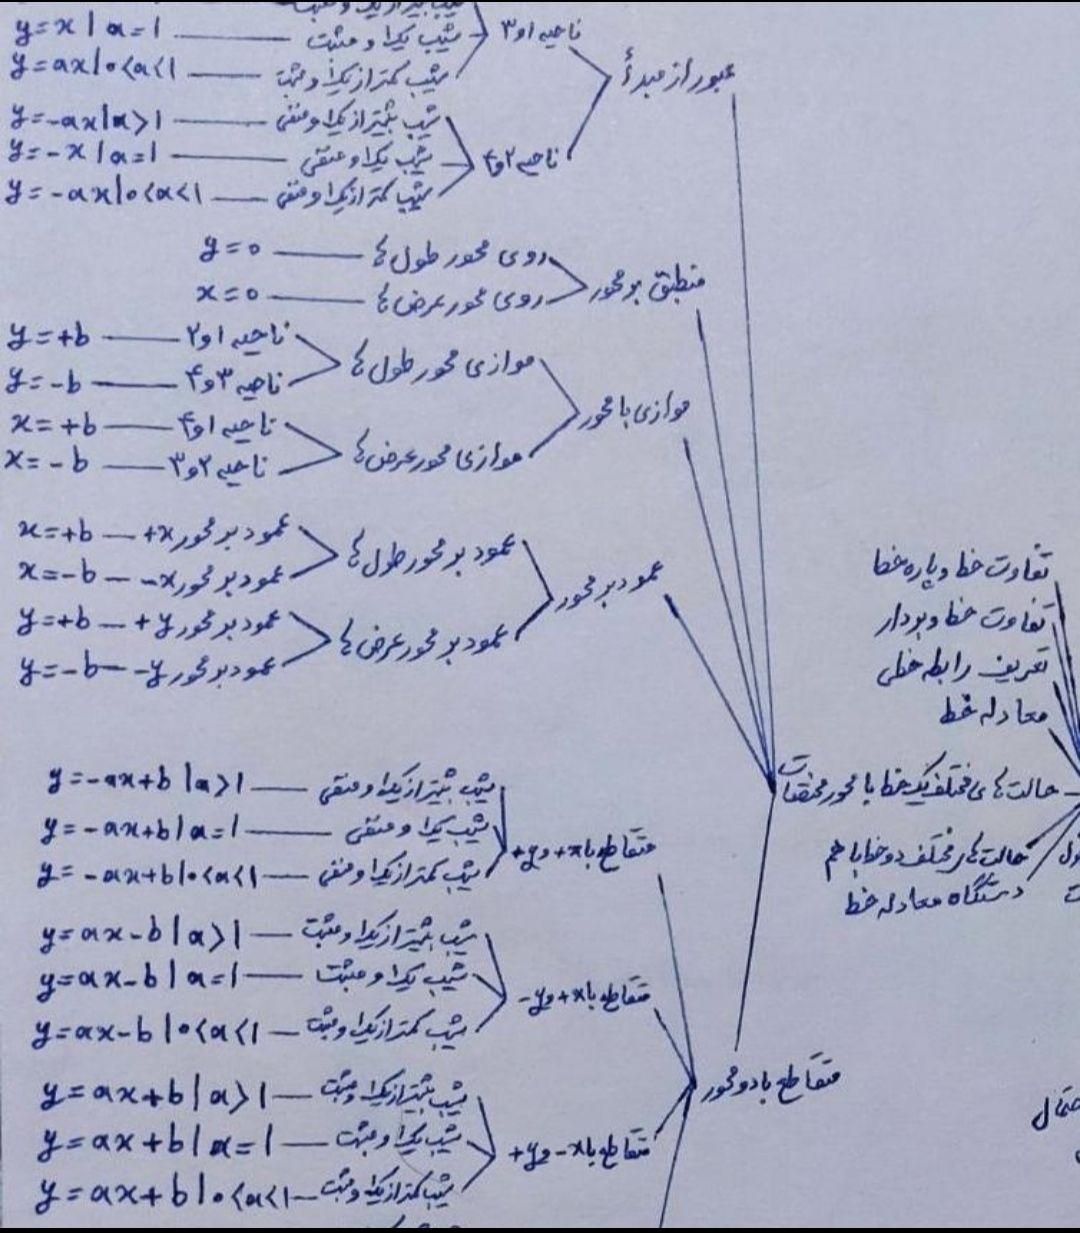 عبور از مبدأ
ناحیه ۱و۳
شیب یک و مثبت — y=x | a=1
شیب کمتر از یک و مثبت — y=ax | 0<a<1
ناحیه ۲و۴
شیب بیشتر از یک و منفی — y=-ax | a>1
شیب یک و منفی — y=-x | a=1
شیب کمتر از یک و منفی — y=-ax | 0<a<1
منطبق بر محور
روی محور طول ها — y=0
روی محور عرض ها — x=0
موازی با محور
موازی محور طول ها
ناحیه ۱و۲ — y=+b
ناحیه ۳و۴ — y=-b
موازی محور عرض ها
ناحیه ۱و۴ — x=+b
ناحیه ۲و۳ — x=-b
عمود بر محور
عمود بر محور طول ها
عمود بر محور +x — x=+b
عمود بر محور -x — x=-b
عمود بر محور عرض ها
عمود بر محور +y — y=+b
عمود بر محور -y — y=-b
تفاوت خط و پاره خط
تفاوت خط و بردار
تعریف رابطه خطی
معادله خط
حالت های مختلف یک خط با محور مختصات
حالت های مختلف دو خط با هم
دستگاه معادله خط
متقاطع با دو محور
متقاطع با +x و +y
شیب بیشتر از یک و منفی — y=-ax+b | a>1
شیب یک و منفی — y=-ax+b | a=1
شیب کمتر از یک و منفی — y=-ax+b | 0<a<1
متقاطع با +x و -y
شیب بیشتر از یک و مثبت — y=ax-b | a>1
شیب یک و مثبت — y=ax-b | a=1
شیب کمتر از یک و مثبت — y=ax-b | 0<a<1
متقاطع با -x و +y
شیب بیشتر از یک و مثبت — y=ax+b | a>1
شیب یک و مثبت — y=ax+b | a=1
شیب کمتر از یک و مثبت — y=ax+b | 0<a<1